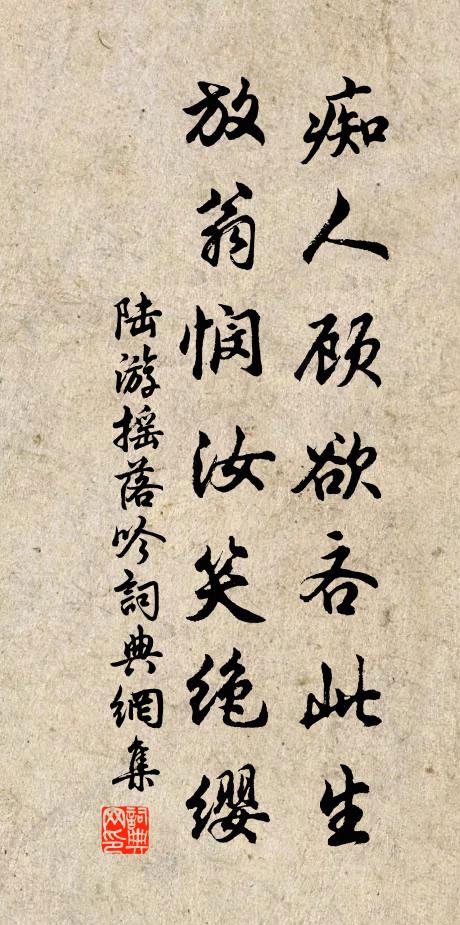 痴人顾欲吝此生
放翁悯汝笑绝缨
陆游摇落吟詞典網集
詞典网印